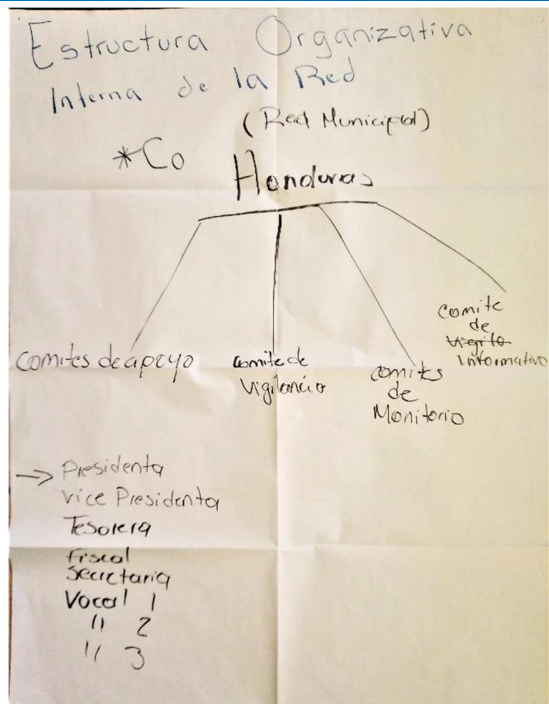 Estructura Organizativa
Interna de la Red
(Red Municipal)
*Co
Honduras
Comites de apoyo
Comite de
Vigilancia
comites
de
Monitorio
comite
de
Vigila
Informativo
→ Presidenta
Vice Presidenta
Tesorera
Fiscal
Secretaria
Vocal 1
" 2
" 3